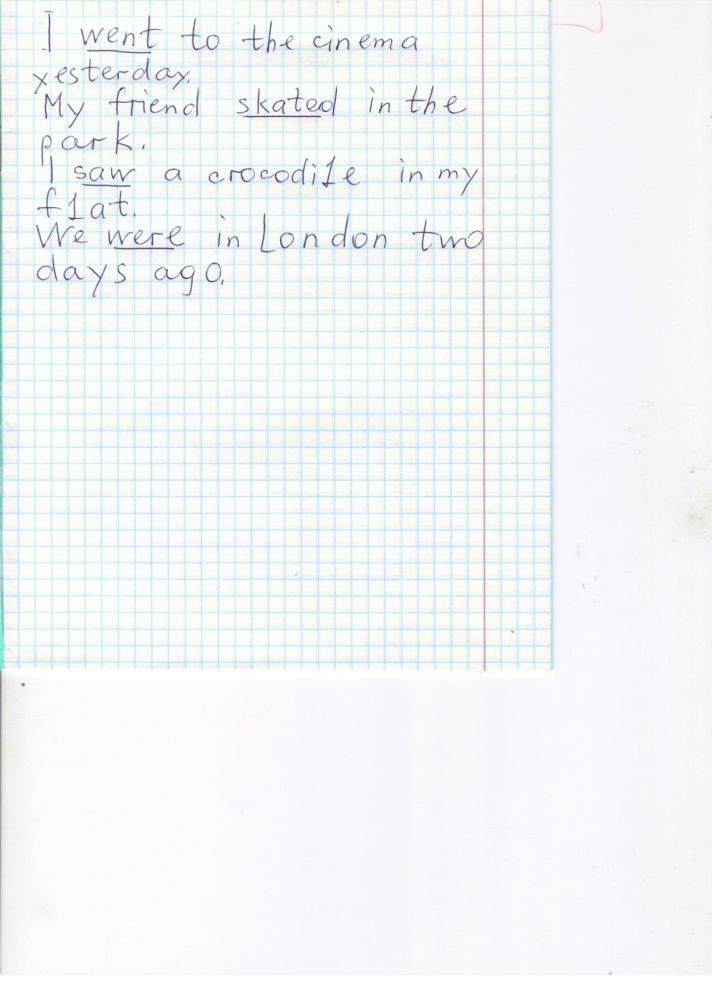 I went to the cinema
yesterday.
My friend skated in the
park.
I saw a crocodile in my
flat.
We were in London two
days ago.